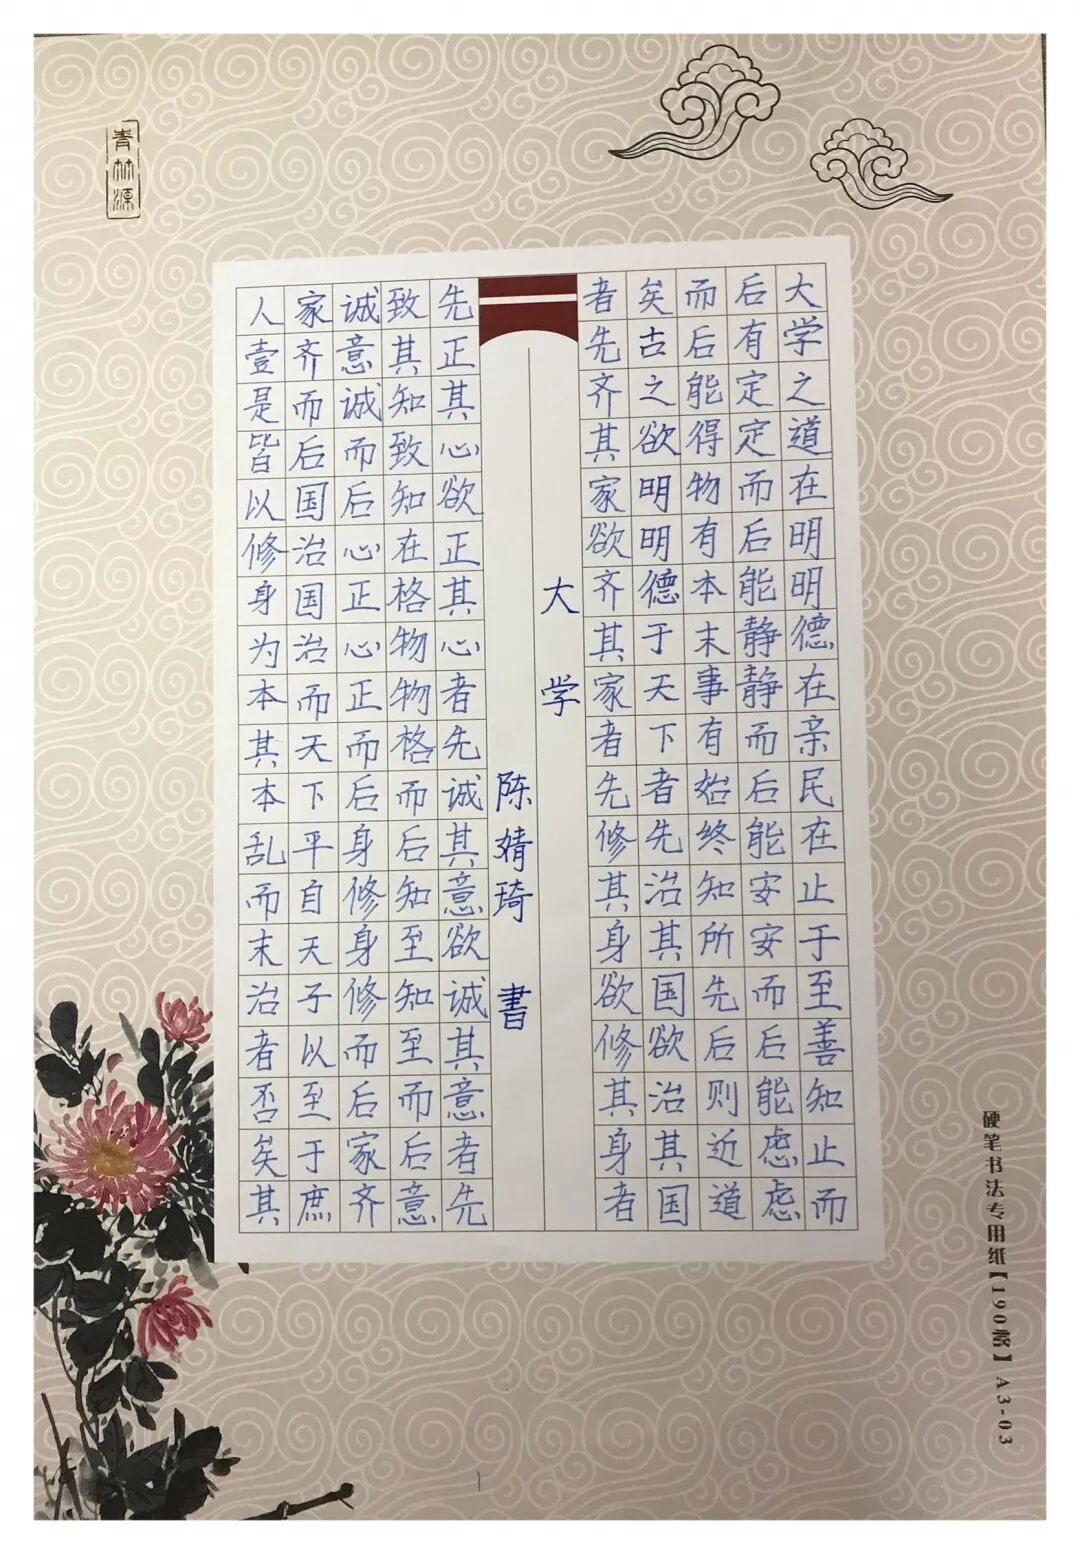 大学之道在明明德在亲民在止于至善知止而
后有定定而后能静静而后能安安而后能虑虑
而后能得物有本末事有始终知所先后则近道
矣古之欲明明德于天下者先治其国欲治其国
者先齐其家欲齐其家者先修其身欲修其身者
大学
陈婧琦 書
先正其心欲正其心者先诚其意欲诚其意者先
致其知致知在格物物格而后知至知至而后意
诚意诚而后心正心正而后身修身修而后家齐
家齐而后国治国治而天下平自天子以至于庶
人壹是皆以修身为本其本乱而末治者否矣其
硬笔书法专用纸【190格】A3-03